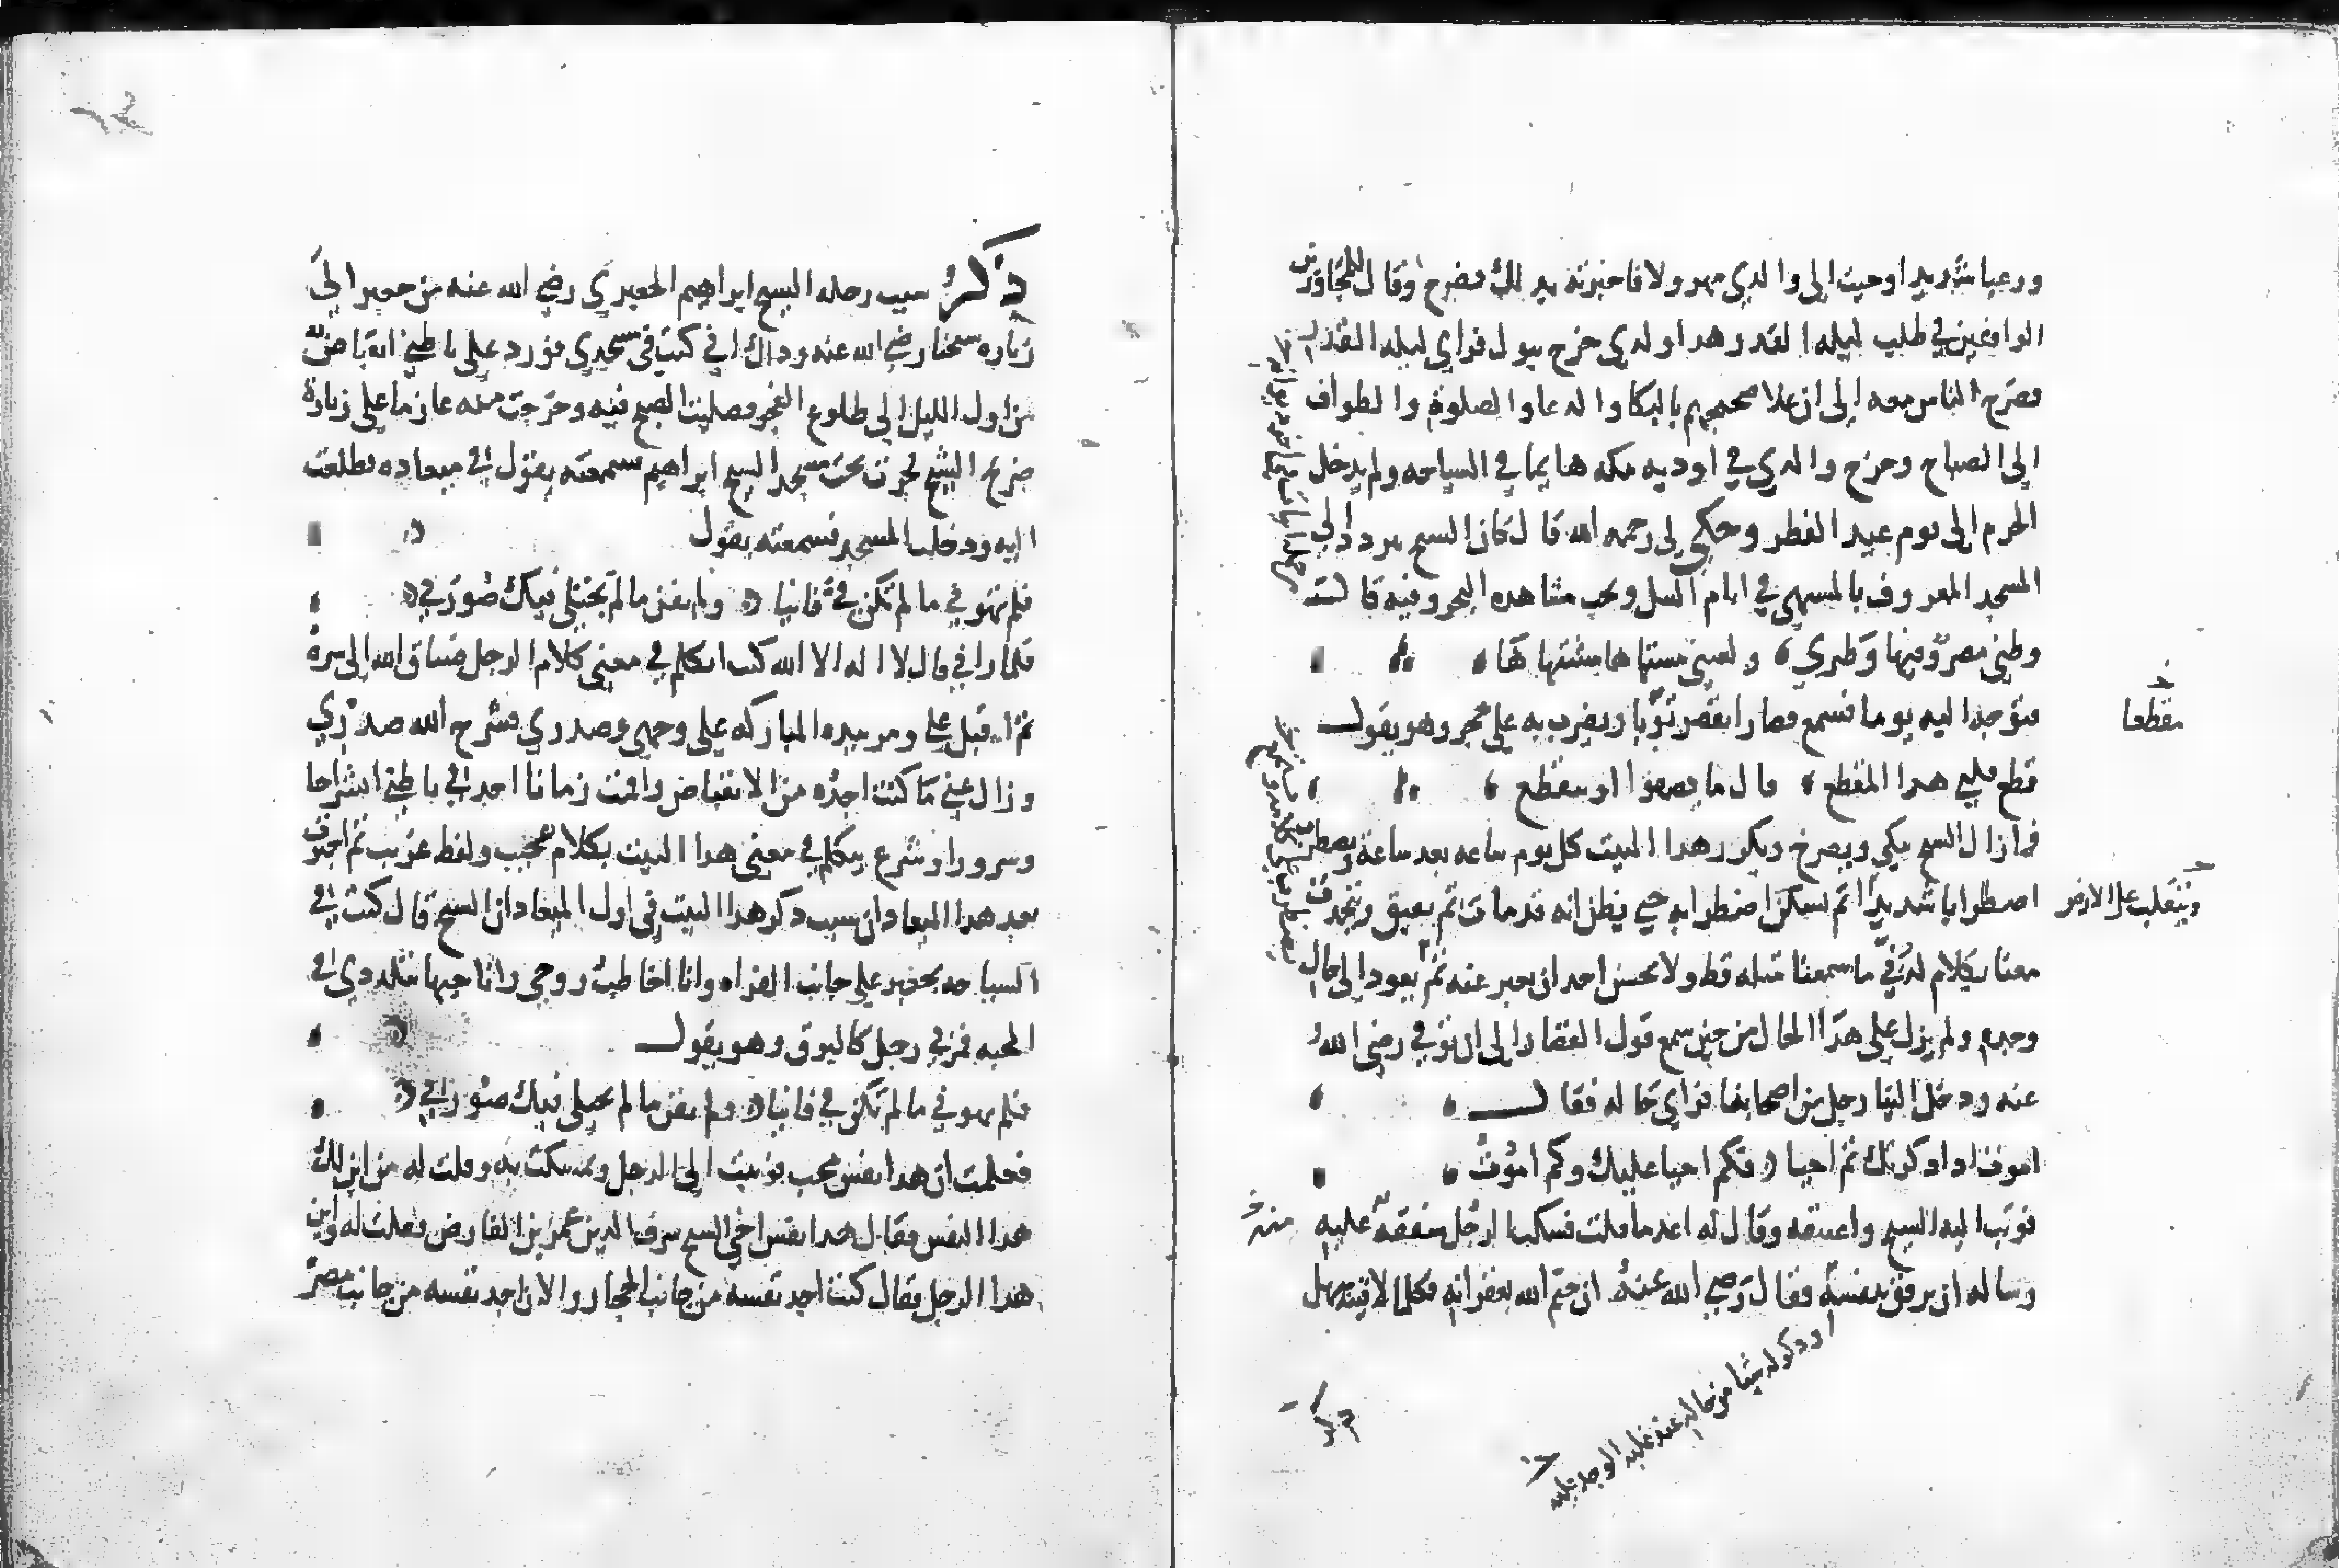 ورعبا شديدا وجيت الى والدي مهرولا فاخبرته بذلك فصرخ وقال للمجاورين
الواقفين في طلب ليلة القدر هذا ولدي خرج يبول فراي ليلة القدر
فصرخ الناس معه الى ان علا ضجيجهم بالبكا والدعا والصلوة والطواف
الى الصباح وخرج والدي في اوديه مكه هايما في السياحه ولم يدخل
الحرم الى يوم عيد الفطر وحكى لي رحمه الله قال كان الشيخ يردد الى
المسجد المعروف بالمشتهى في ايام النيل ويحب مشاهده البحر وفيه قال
وطني مصر وفيها وطري ولعيني مشتهاها مشتهاها
فتوجه اليه يوما فسمع قصارا يقصر ثوبا ويضرب به على حجر وهو يقول
مقطعا
قطع قلبي هذا المقطع قال ما يصفو او يتقطع
فما زال الشيخ يبكي ويصرخ ويكرر هذا البيت كل يوم ساعه بعد ساعه ويضطرب
اضطرابا شديدا ثم يسكن اضطرابه حتى يظن انه قد مات ثم يفيق ويتحدث
وينقلب على الارض
معنا بكلام لدني ما سمعنا مثله قط ولا يحسن احد ان يعبر عنه ثم يعود الى حال
وجده ولم يزل على هذا الحال من حين سمع قول القصار الى ان توفي رضي الله
عنه ودخل الينا رجل من اصحابنا فراى حاله فقال
اموت اذا ذكرتك ثم احيا فكم احيا عليك وكم اموت
فوثب اليه الشيخ واعتنقه وقال له اعد ما قلت فسكت الرجل شفقة عليه
منه
وساله ان يرفق بنفسه فقال رضي الله عنه ان ختم الله بغفرانه فكلما لاقيته سهل
وذكر له شيئا من حاله عند غلبه الوجد عليه
ذكر سبب رحله الشيخ ابراهيم الجعبري رضي الله عنه من جعبر الى
زياره شيخنا رضي الله عنه وذاك اني كنت في مسجدي فورد على باطني انقباض
من اول الليل الى طلوع الفجر وصليت الصبح فيه وخرجت منه عازما على زيارة
ضريح الشيخ فجزت تحت مسجد الشيخ ابراهيم سمعته يقول في ميعاده فطلعت
اليه ودخلت المسجد فسمعته يقول
فلم تهوني ما لم تكن في فانيا ولم تفن ما لم تجتلى فيك صورتي
فلما راني قال لا اله الا الله كنت اتكلم في معنى كلام الرجل فساق الله الى سره
ثم اقبل علي ومر بيده المباركه على وجهي وصدري فشرح الله صدري
وزال عني ما كنت اجده من الانقباض واقمت زمانا اجد في باطني انشراحا
وسرورا وشرع يتكلم في معنى هذا البيت بكلام عجيب ولفظ غريب ثم اخبرت
بعد هذا الميعاد ان سبب ذكر هذا البيت في اول الميعاد ان الشيخ قال كنت في
السياحه بجعبر على جانب الفراه وانا اخاطب روحي واناجيها بتلذذي في
المحبه فمر بي رجل كالبرق وهو يقول
فلم تهوني ما لم تكن في فانيا ولم تفن ما لم تجتلى فيك صورتي
فعلمت ان هذا نفس محب فوثبت الى الرجل وتمسكت به وقلت له من اين لك
هذا النفس فقال هذا نفس اخي الشيخ شرف الدين عمر بن الفارض فقلت له واين
هذا الرجل فقال كنت اجد نفسه من جانب الحجاز والان اجد نفسه من جانب مصر